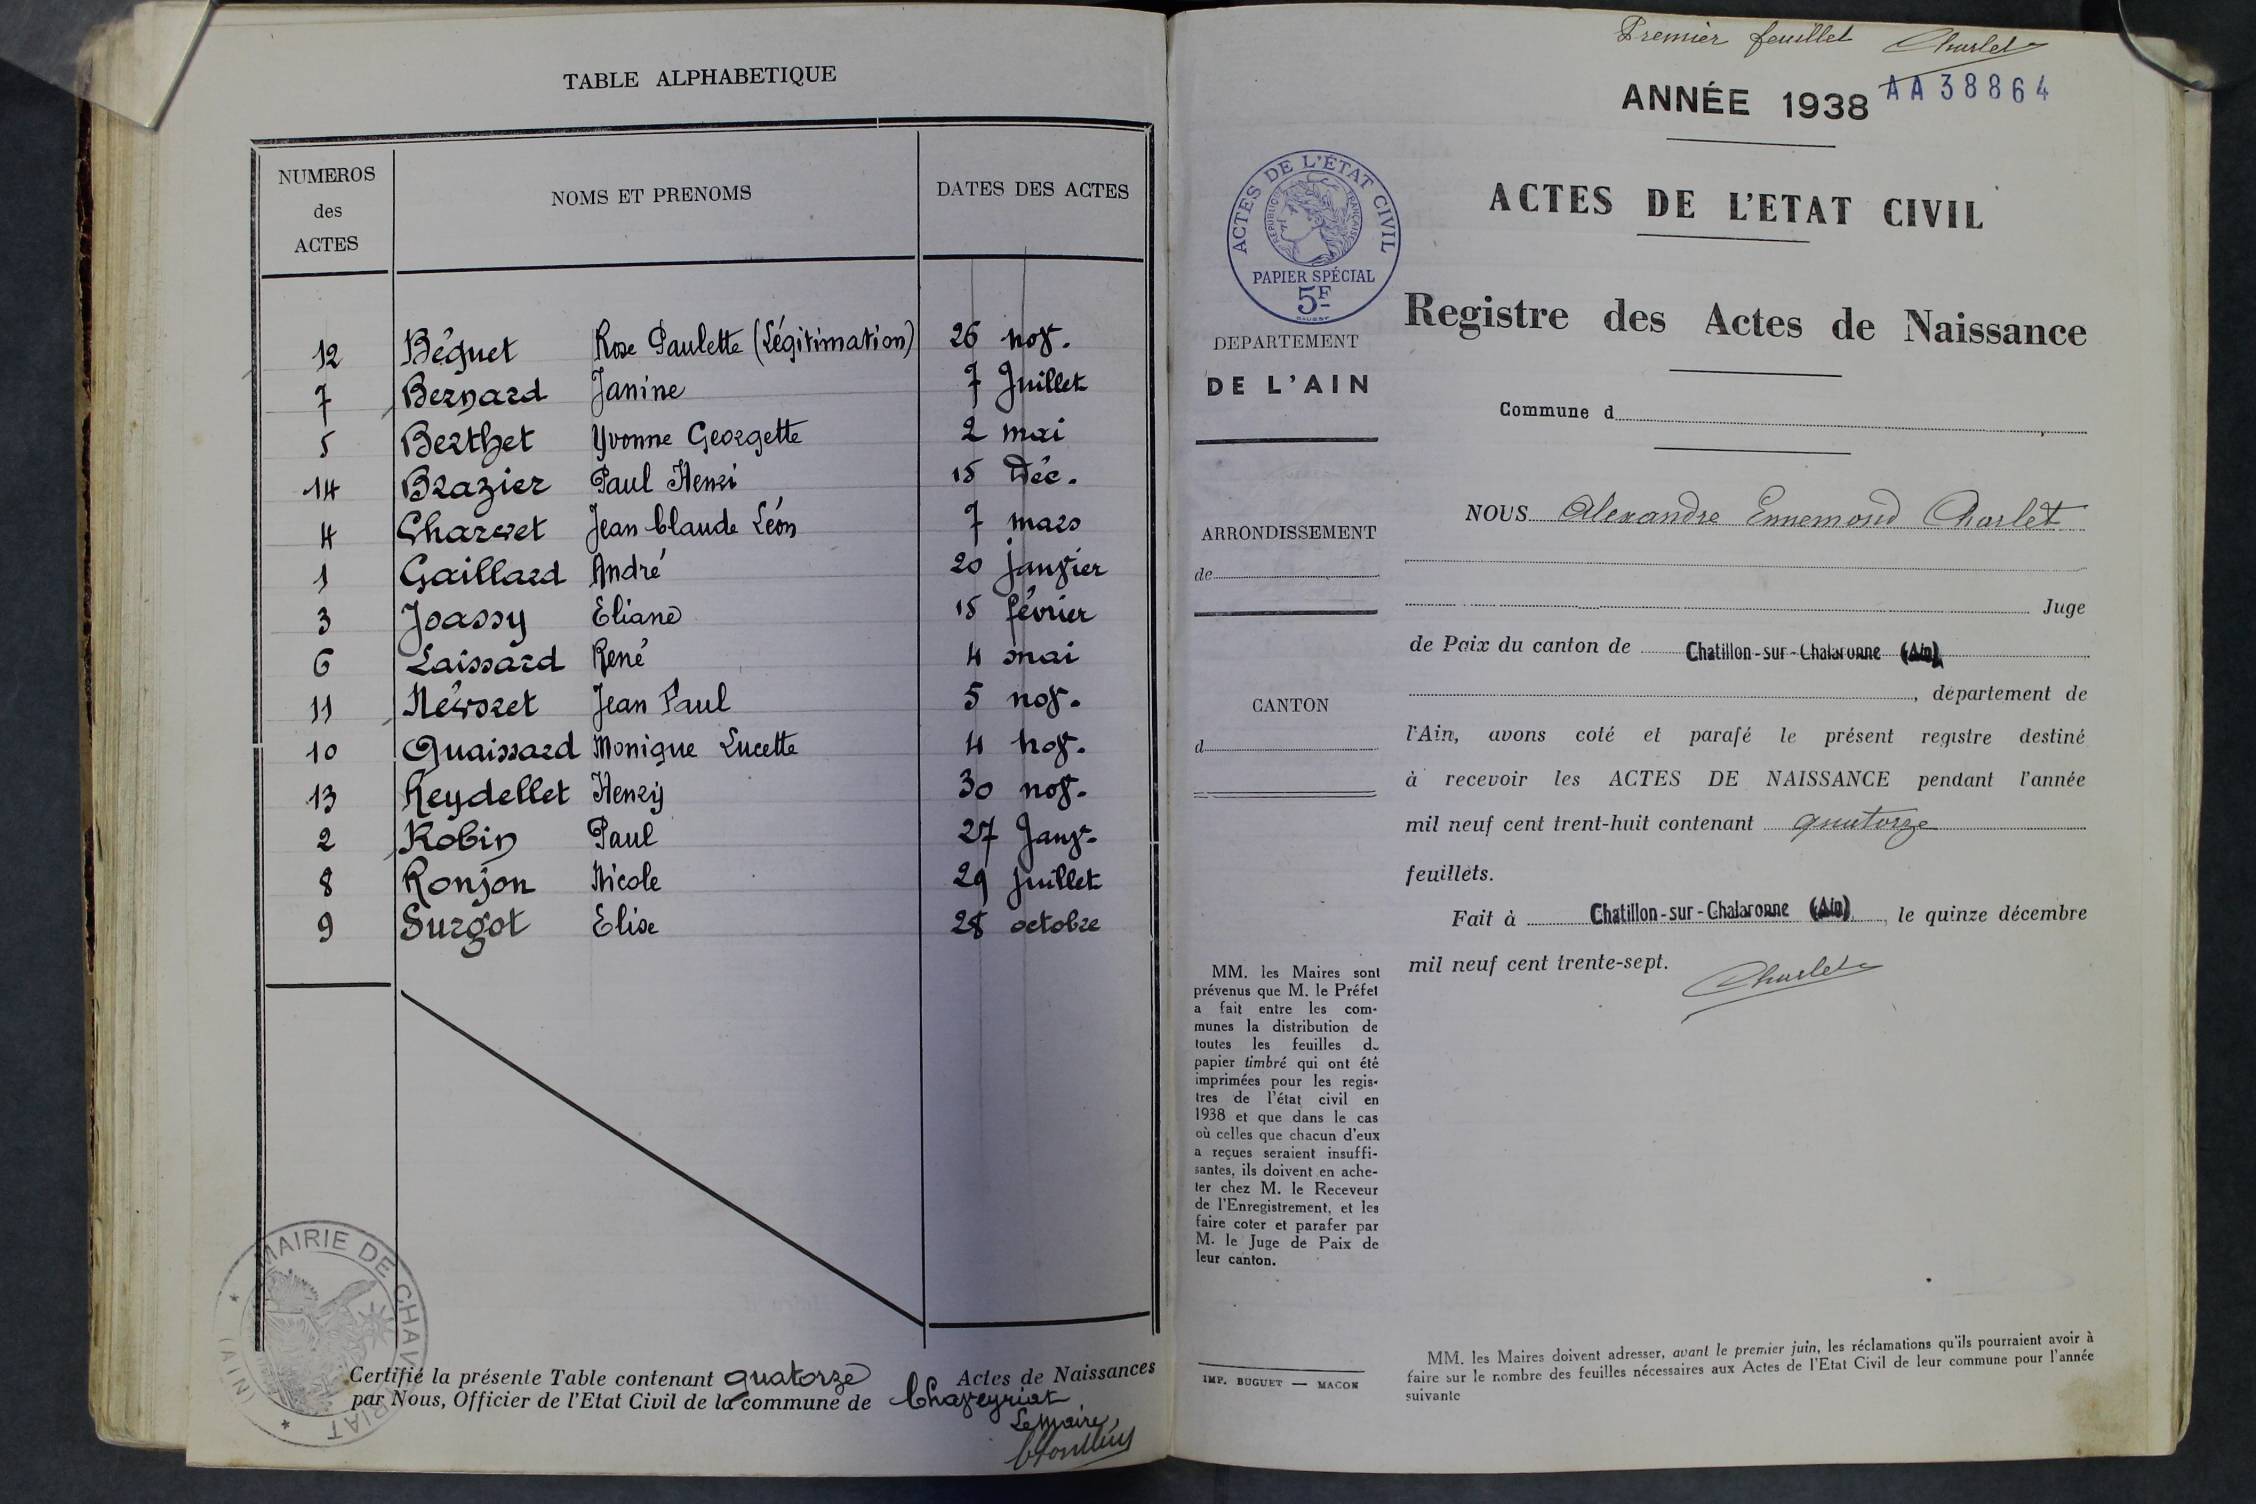 TABLE ALPHABETIQUE
NUMEROS des ACTES | NOMS ET PRENOMS | DATES DES ACTES
12 Béguet Rose Paulette (Légitimation) 26 nov.
7 Bernard Janine 7 Juillet
5 Berthet Yvonne Georgette 2 mai
14 Brazier Paul Henri 15 Déc.
4 Charvet Jean Claude Léon 7 mars
1 Gaillard André 20 janvier
3 Joassy Eliane 15 février
6 Laissard René 4 mai
11 Névoret Jean Paul 5 nov.
10 Quaissard Monique Lucette 4 nov.
13 Reydellet Henry 30 nov.
2 Robin Paul 27 Janv.
8 Ronjon Nicole 29 juillet
9 Surgot Elise 28 octobre
MAIRIE DE CHAVEYRIAT
(AIN)
Certifié la présente Table contenant quatorze Actes de Naissances
par Nous, Officier de l'Etat Civil de la commune de Chaveyriat
Le Maire,
Premier feuillet Charlet
ANNÉE 1938 AA38864
ACTES DE L'ÉTAT CIVIL
REPUBLIQUE FRANÇAISE
PAPIER SPÉCIAL
5F
ACTES DE L'ETAT CIVIL
Registre des Actes de Naissance
DEPARTEMENT
DE L'AIN
Commune d
NOUS Alexandre Ennemond Charlet
ARRONDISSEMENT
de
Juge
de Paix du canton de Chatillon-sur-Chalaronne (Ain)
, département de
CANTON
d
l'Ain, avons coté et parafé le présent registre destiné
à recevoir les ACTES DE NAISSANCE pendant l'année
mil neuf cent trent-huit contenant quatorze
feuillets.
Fait à Chatillon-sur-Chalaronne (Ain), le quinze décembre
mil neuf cent trente-sept.
Charlet
MM. les Maires sont
prévenus que M. le Préfet
a fait entre les com-
munes la distribution de
toutes les feuilles de
papier timbré qui ont été
imprimées pour les regis-
tres de l'état civil en
1938 et que dans le cas
où celles que chacun d'eux
a reçues seraient insuffi-
santes, ils doivent en ache-
ter chez M. le Receveur
de l'Enregistrement, et les
faire coter et parafer par
M. le Juge de Paix de
leur canton.
IMP. BUGUET — MACON
MM. les Maires doivent adresser, avant le premier juin, les réclamations qu'ils pourraient avoir à
faire sur le nombre des feuilles nécessaires aux Actes de l'Etat Civil de leur commune pour l'année
suivante